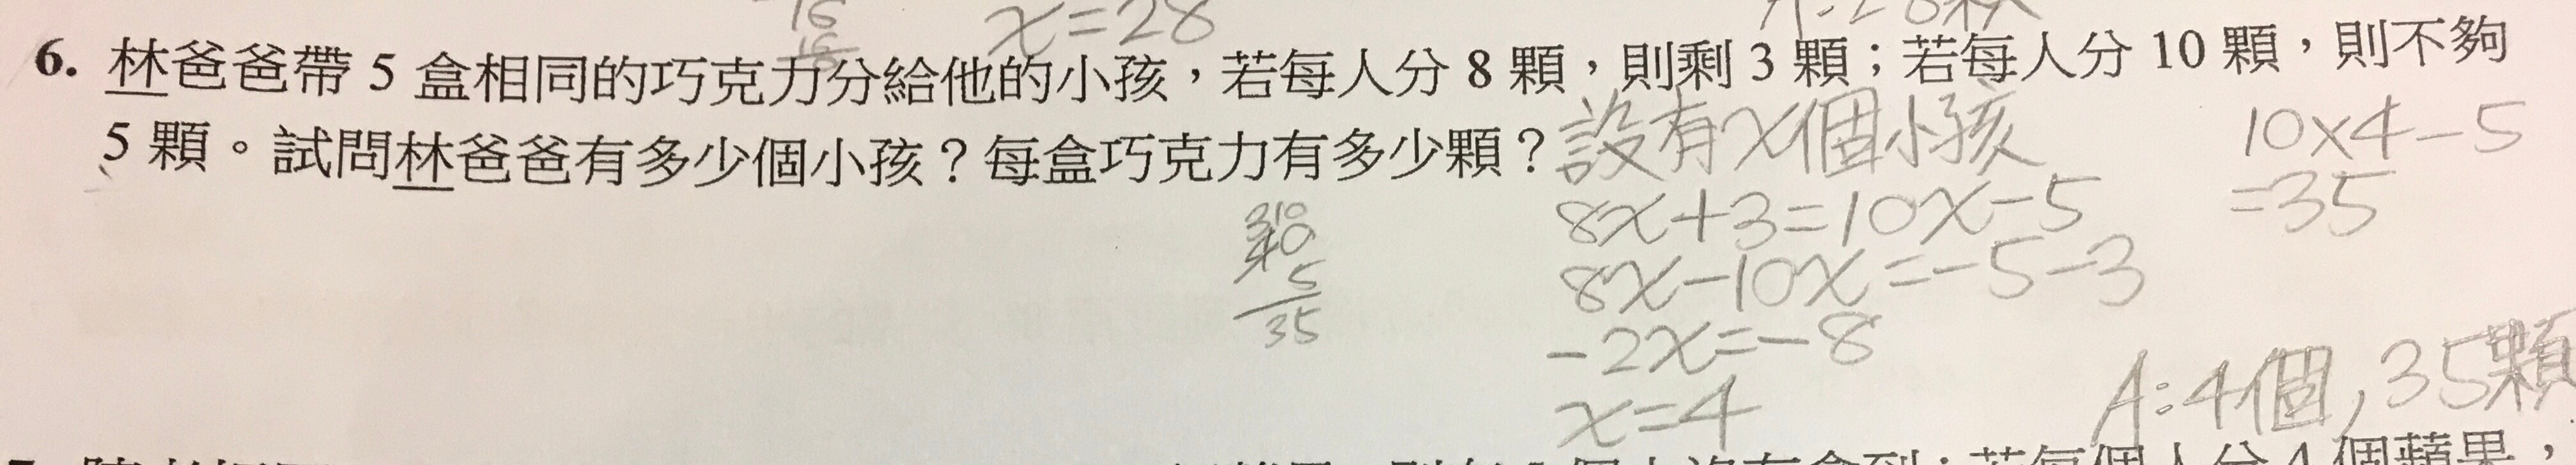 x=28
6. 林爸爸帶 5 盒相同的巧克力分給他的小孩，若每人分 8 顆，則剩 3 顆；若每人分 10 顆，則不夠
5 顆。試問林爸爸有多少個小孩？每盒巧克力有多少顆？
設有x個小孩
8x+3=10x-5
8x-10x=-5-3
-2x=-8
x=4
10x4-5
=35
310
40
5
35
A:4個,35顆